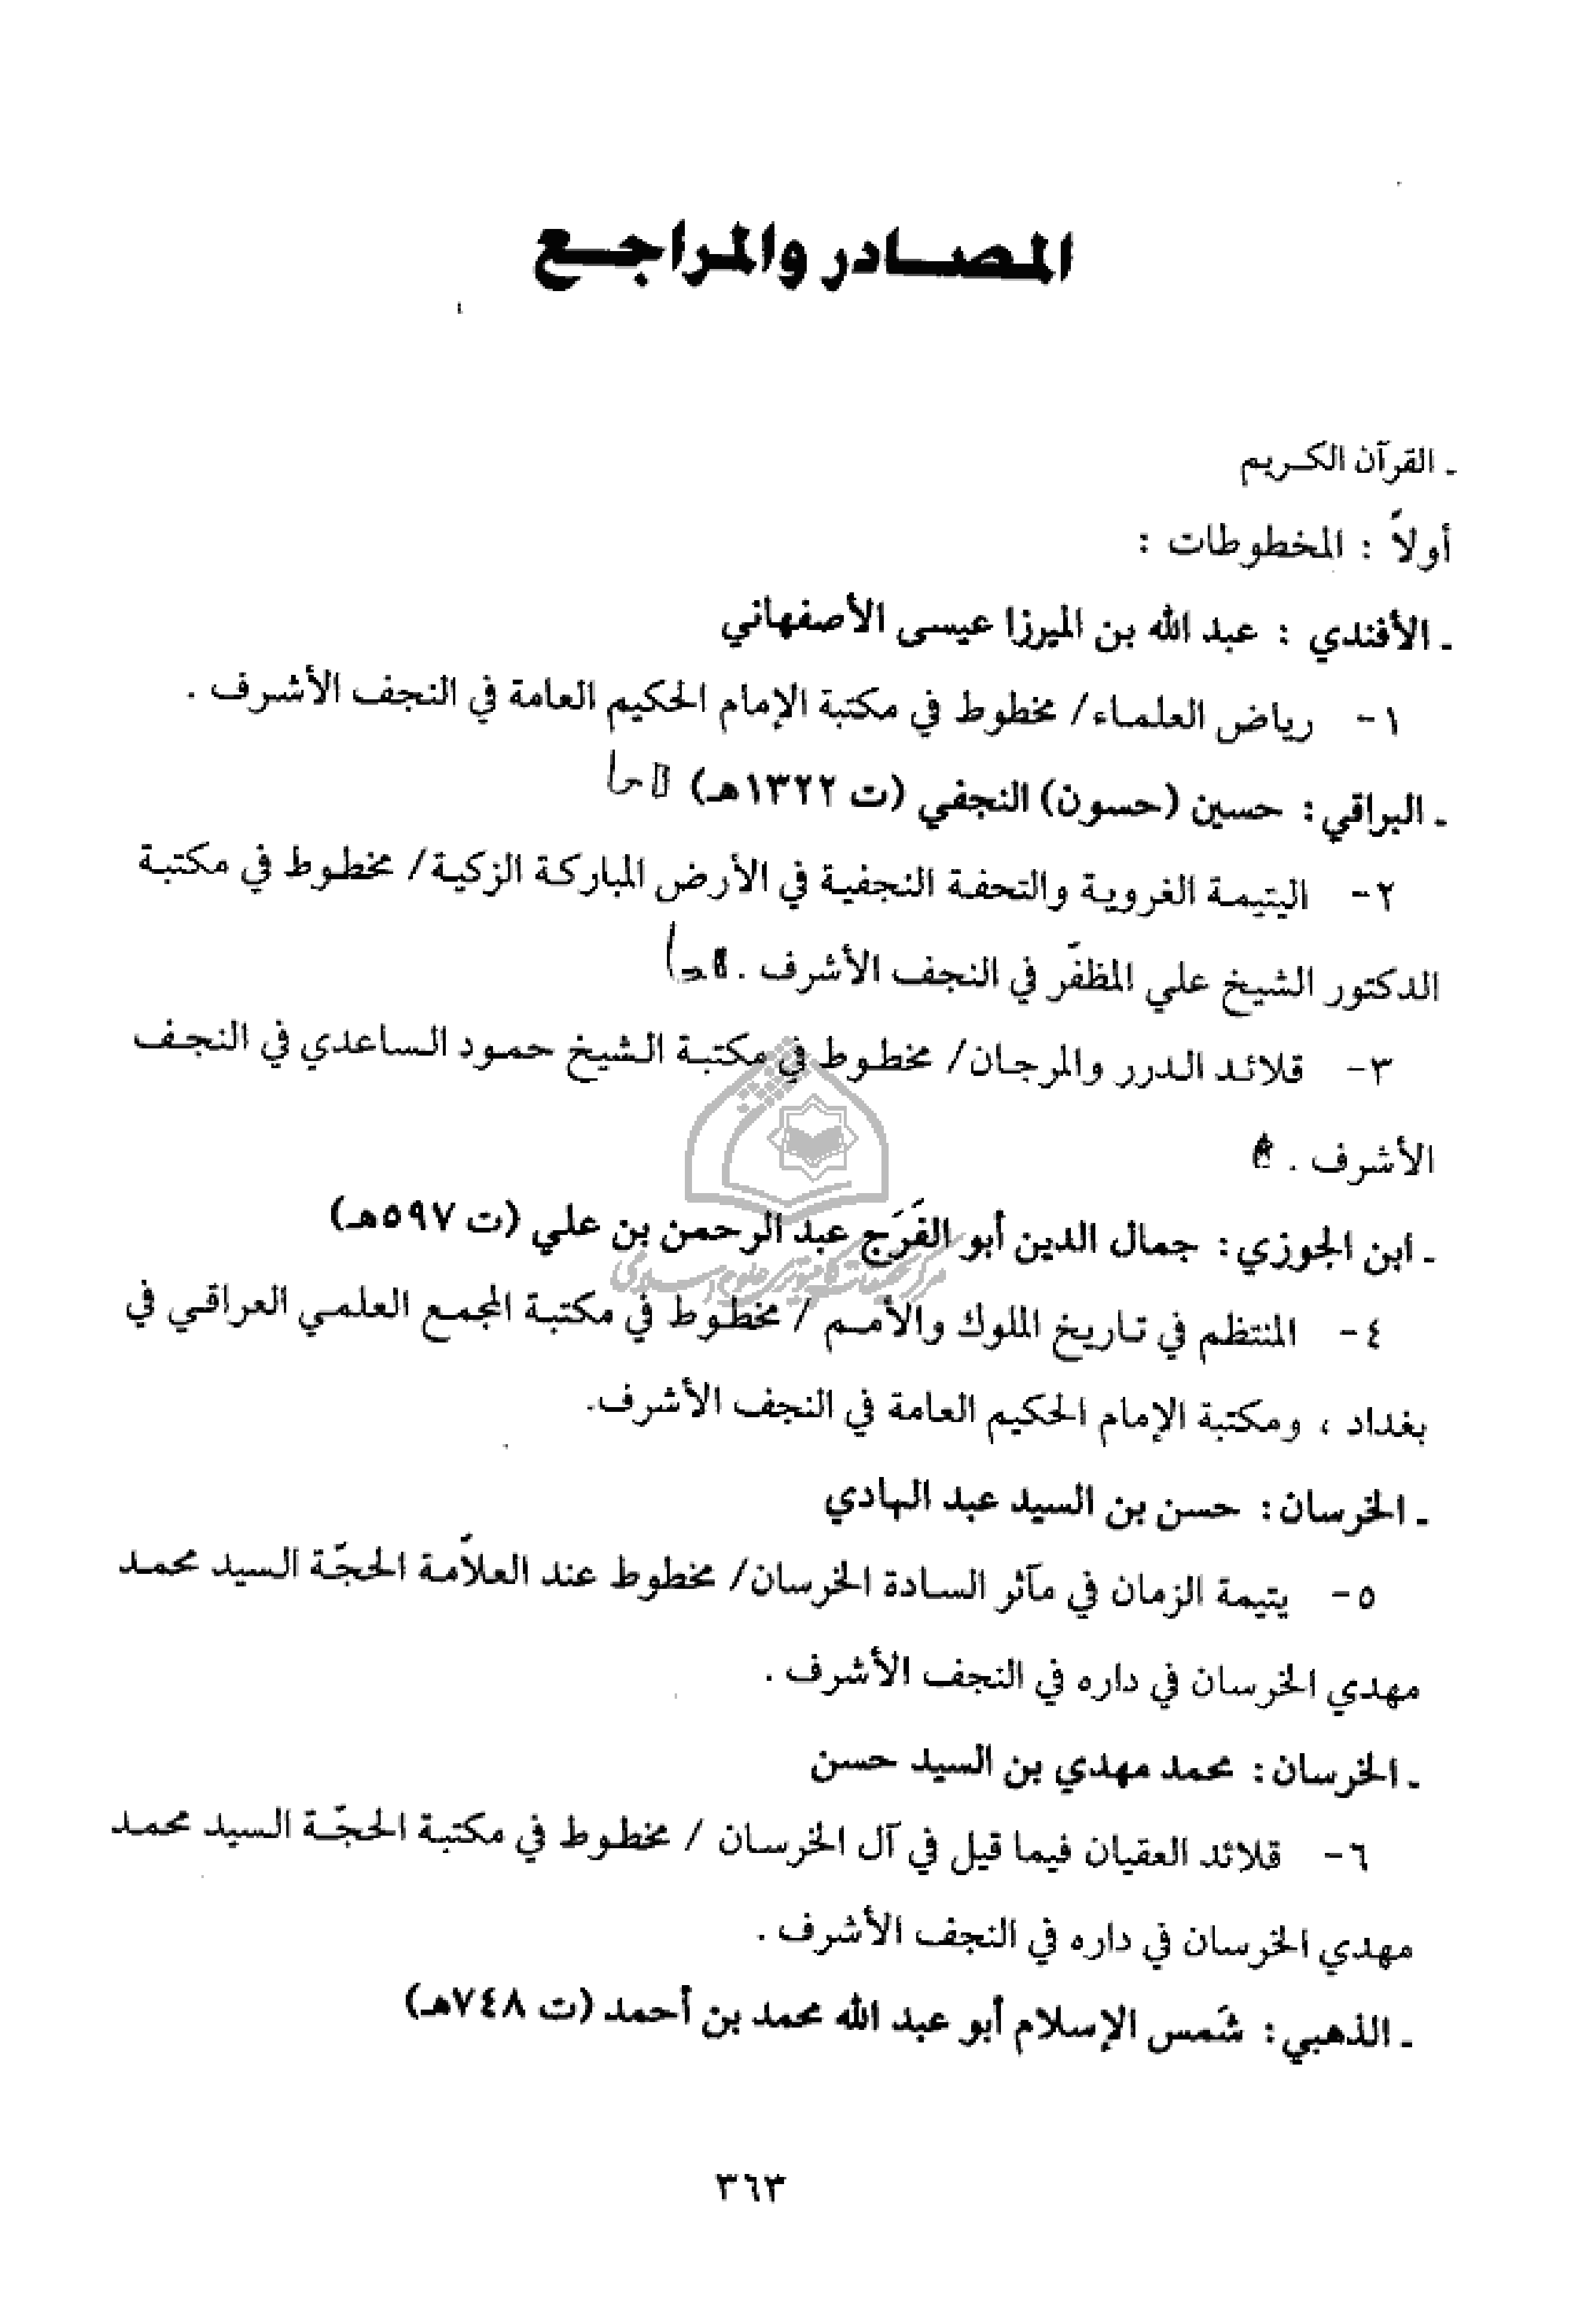 المصادر والمراجع
ـ القرآن الكريم
أولاً : المخطوطات :
ـ الأفندي : عبد الله بن الميرزا عيسى الأصفهاني
١- رياض العلماء/ مخطوط في مكتبة الإمام الحكيم العامة في النجف الأشرف .
ـ البراقي: حسين (حسون) النجفي (ت ١٣٢٢هـ)
٢- اليتيمة الغروية والتحفة النجفية في الأرض المباركة الزكية/ مخطوط في مكتبة
الدكتور الشيخ علي المظفّر في النجف الأشرف .
٣- قلائد الدرر والمرجان/ مخطوط في مكتبة الشيخ حمود الساعدي في النجف
الأشرف .
ـ ابن الجوزي: جمال الدين أبو الفَرَج عبد الرحمن بن علي (ت ٥٩٧هـ)
٤- المنتظم في تاريخ الملوك والأمم / مخطوط في مكتبة المجمع العلمي العراقي في
بغداد ، ومكتبة الإمام الحكيم العامة في النجف الأشرف.
ـ الخرسان: حسن بن السيد عبد الهادي
٥- يتيمة الزمان في مآثر السادة الخرسان/ مخطوط عند العلاّمة الحجّة السيد محمد
مهدي الخرسان في داره في النجف الأشرف .
ـ الخرسان: محمد مهدي بن السيد حسن
٦- قلائد العقيان فيما قيل في آل الخرسان / مخطوط في مكتبة الحجّة السيد محمد
مهدي الخرسان في داره في النجف الأشرف .
ـ الذهبي: شَمس الإسلام أبو عبد الله محمد بن أحمد (ت ٧٤٨هـ)
٣٦٣